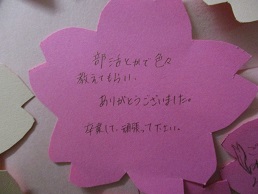 部活とかで色々
教えてもらい、
ありがとうございました。
卒業して、頑張って下さい。